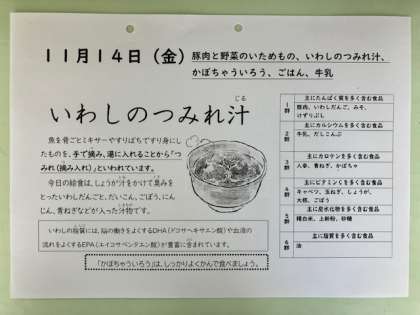 11月14日（金）
豚肉と野菜のいためもの、いわしのつみれ汁、
かぼちゃういろう、ごはん、牛乳
いわしのつみれ汁
じる
魚を骨ごとミキサーやすりばちですり身にし
たものを、手で摘み、湯に入れることから「つ
みれ（摘み入れ）」といわれています。
今日の給食は、しょうが汁をかけて臭みを
とったいわしだんごと、だいこん、ごぼう、にん
じん、青ねぎなどが入った汁物です。
いわしの脂質には、脳の働きをよくするDHA（ドコサヘキサエン酸）や血液の
流れをよくするEPA（エイコサペンタエン酸）が豊富に含まれています。
「かぼちゃういろう」は、しっかりよくかんで食べましょう。
主にたんぱく質を多く含む食品
1群
豚肉、いわしだんご、みそ、
けずりぶし
主にカルシウムを多く含む食品
2群
牛乳、だしこんぶ
主にカロテンを多く含む食品
3群
人参、青ねぎ、かぼちゃ
主にビタミンCを多く含む食品
4群
キャベツ、玉ねぎ、しょうが、
大根、ごぼう
主に炭水化物を多く含む食品
5群
精白米、上新粉、砂糖
主に脂質を多く含む食品
6群
油